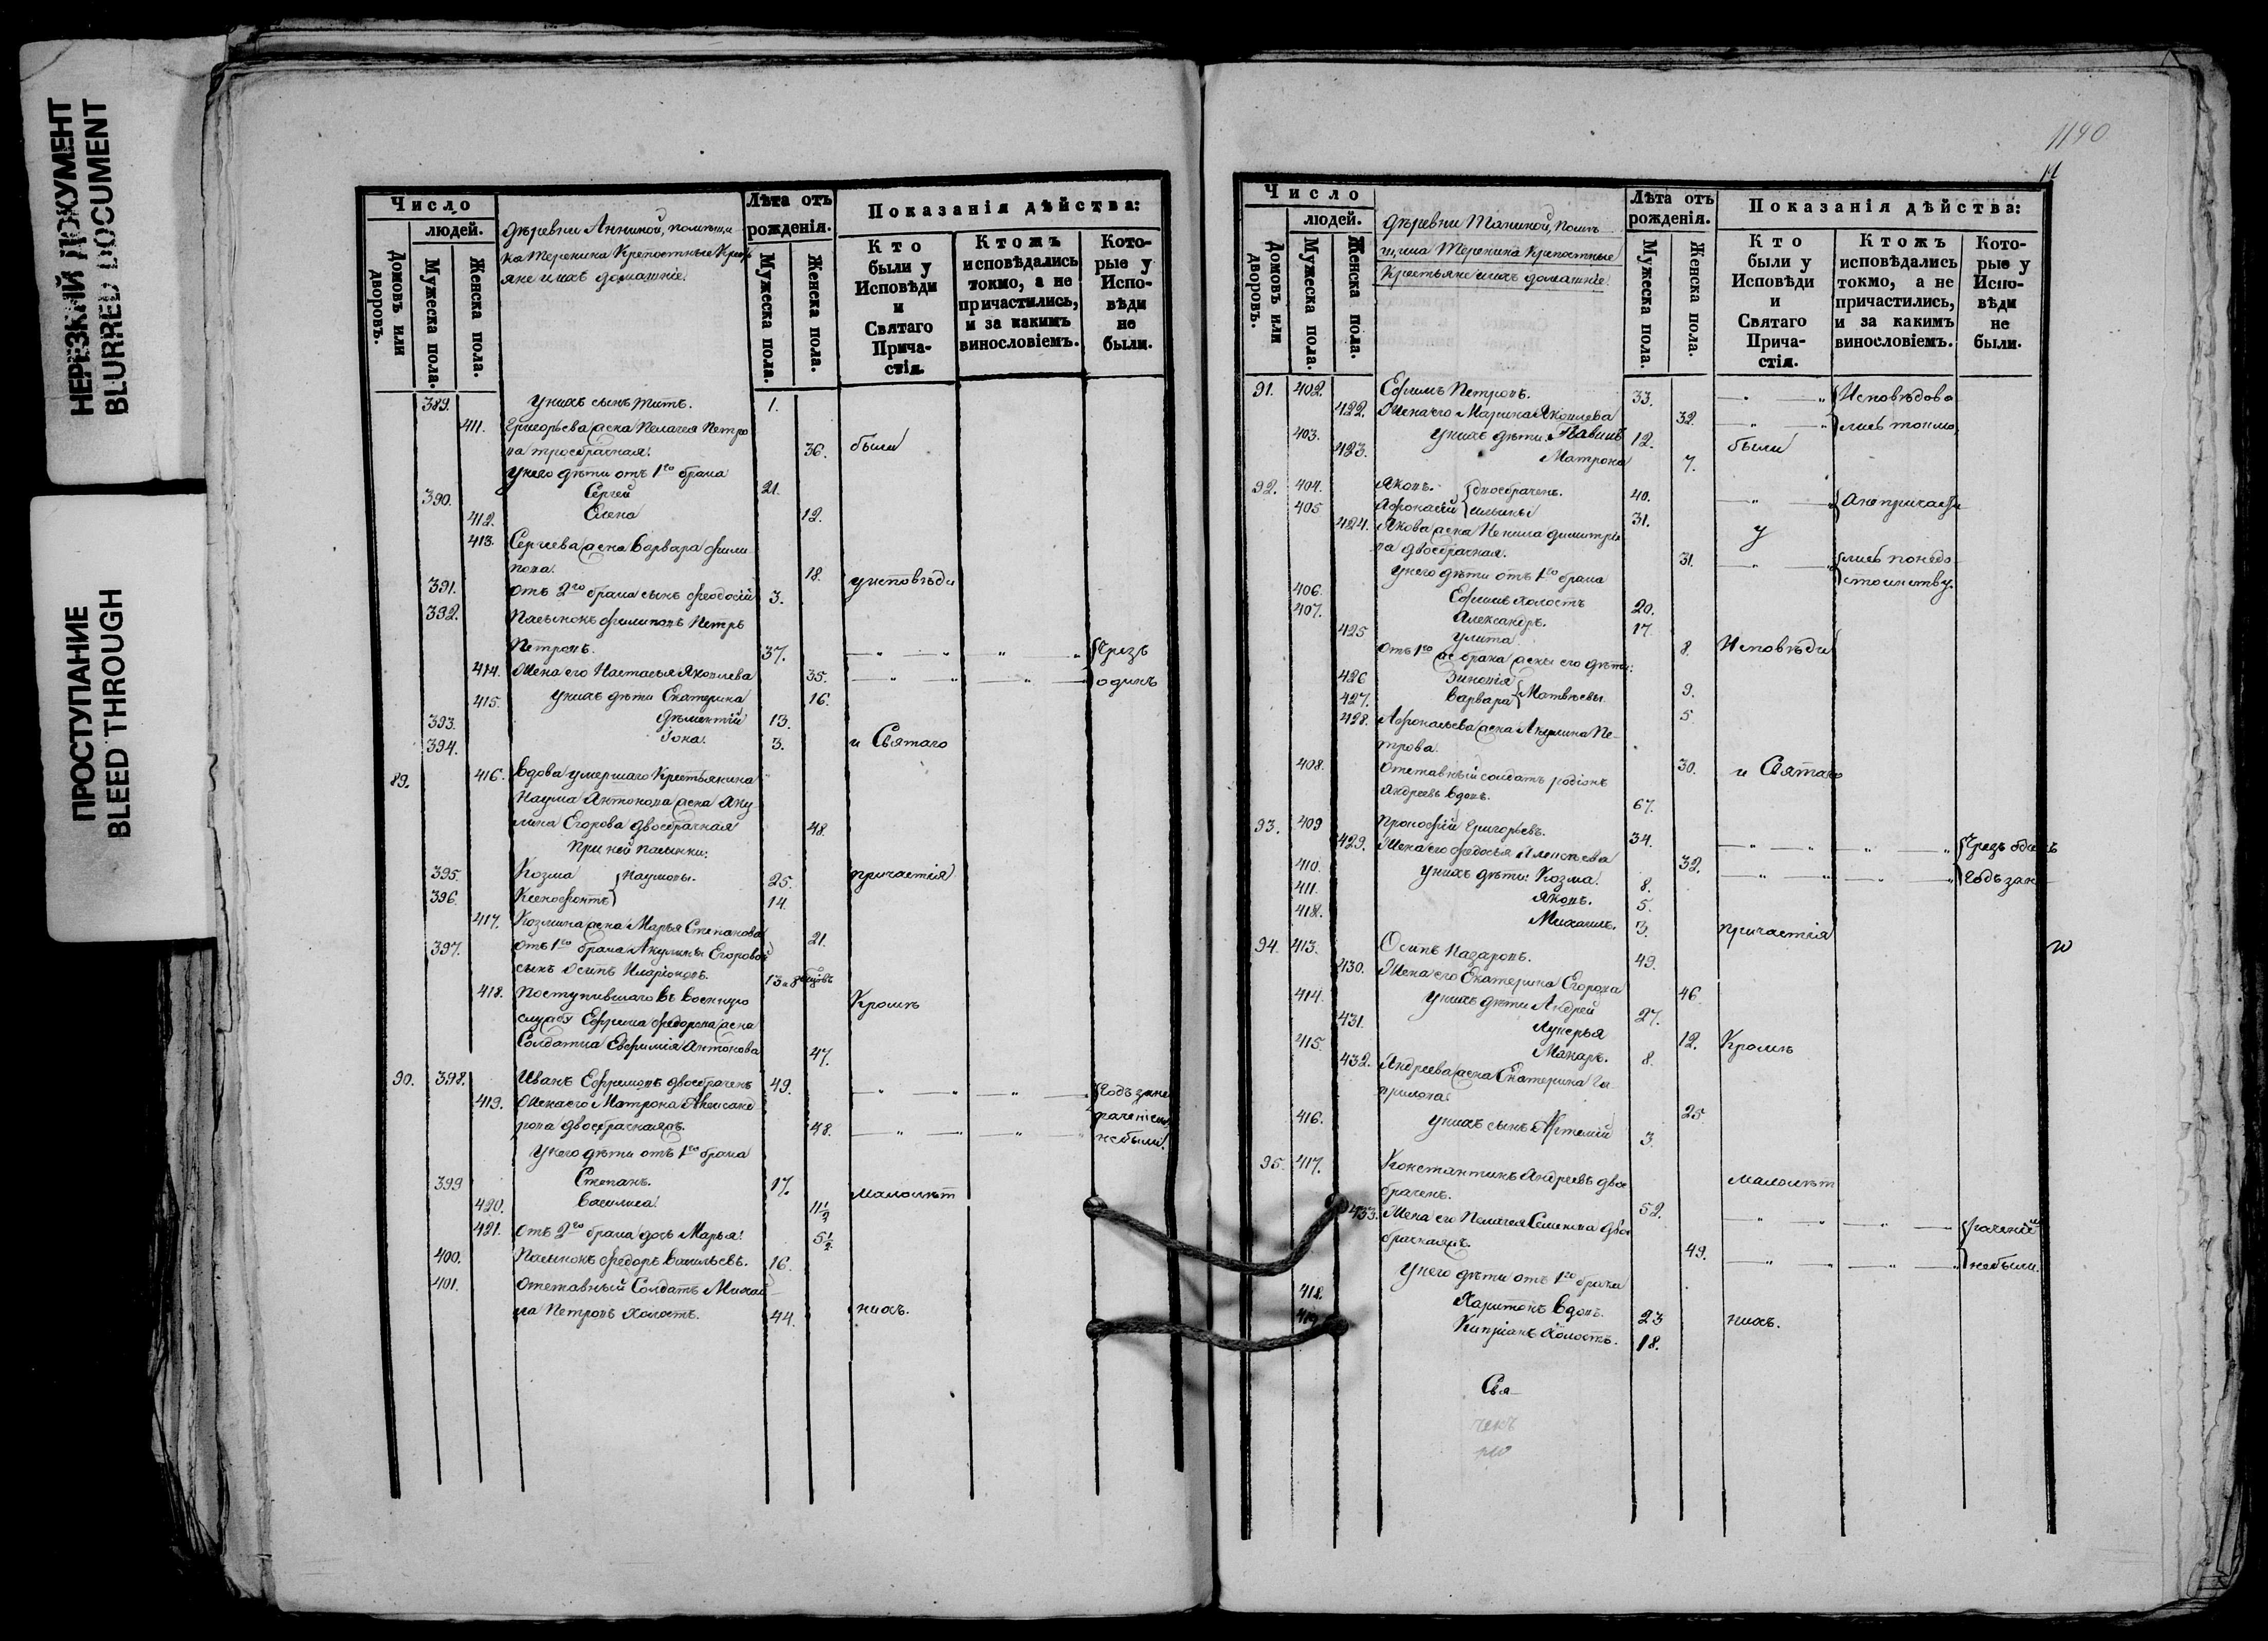 НЕРЕЗКИЙ ДОКУМЕНТ
BLURRED DOCUMENT
ПРОСТУПАНИЕ
BLEED THROUGH
Число
людей.
Домовъ или дворовъ.
Мужеска пола.
Женска пола.
Лѣта отъ рожденія.
Мужеска пола.
Женска пола.
Показанія дѣйства:
Кто были у Исповѣди и Святаго Причастія.
Ктожъ исповѣдались токмо, а не причастились, и за какимъ винословіемъ.
Которые у Исповѣди не были.
деревни
помѣщи
ка Теренина Крепостные Крестья
яне и ихъ домашніе.
389. у нихъ сынъ Титъ. 1.
411. Григорьева жена Пелагея Петро
ва троебрачная. 36. были
у него дѣти отъ 1го брака
390. Сергей 21.
412. Елена 12.
413. Сергеева жена Варвара Фили
пова. 18. у исповѣди
391. отъ 2го брака сынъ Феодосій 3.
392. Пасынокъ Филиповъ Петръ
Петровъ. 37. Чрезъ
414. Жена его Настасья Яковлева 35. одинъ
415. у нихъ дѣти Екатерина 16.
393. Дѣментій 13.
394. Іона. 3. и Святаго
89. 416. Вдова умершаго Крестьянина
Наума Антонова жена Аку
лина Егорова двоебрачная 48.
При ней пасынки:
395. Козма Наумовы. 25. причастія
396. Ксенофонтъ 14.
417. Козмина жена Марья Степанова 21.
397. отъ 1го брака Акулины Егоровой
сынъ Осипъ Иларіоновъ. 13 и 8
418. Поступившаго въ военную
службу Ефрема Федорова жена Кромѣ
Солдатка Евфимія Антонова 47.
90. 398. Иванъ Ефремовъ двоебраченъ 49. Годъ за не
419. Жена его Матрона Александ
рова двоебрачная. 48. не были.
у него дѣти отъ 1го брака
399 Степанъ. 17. малолѣт
420. Василиса. 11½
421. отъ 2го брака дочь Марья. 5½
400. Пасынокъ Федоръ Васильевъ. 16.
401. отставный Солдатъ Михай
ла Петровъ холостъ. 44. нихъ.
1190
Число
людей.
Домовъ или дворовъ.
Мужеска пола.
Женска пола.
Лѣта отъ рожденія.
Мужеска пола.
Женска пола.
Показанія дѣйства:
Кто были у Исповѣди и Святаго Причастія.
Ктожъ исповѣдались токмо, а не причастились, и за какимъ винословіемъ.
Которые у Исповѣди не были.
деревни
помѣ
щика Теренина Крепостные
Крестьяне и ихъ домашніе.
91. 402. Ефимъ Петровъ. 33. Исповѣдова
422. Жена его Марина Яковлева 32. лись токмо,
403. у нихъ дѣти: Павилъ 12. были
423. Матрона 7.
92. 404. Яковъ. двоебраченъ. 40.
405 Афонасій Ильины 31.
424. Якова жена Ненила Димитріе
ва двоебрачная. 31. лись по недо
у него дѣти отъ 1го брака стоинству.
406. Ефимъ холостъ 20.
407. Александръ. 17.
425 Улита 8. Исповѣди
отъ 1го брака жены его дѣти:
426 Зиновія Матвѣевы 9.
427. Варвара 5.
428. Афонасьева жена Акулина Пе-
трова. 30. и Святаго
408. отставный солдатъ Родіонъ
Андреевъ вдовъ. 67.
93. 409 Прокофій Григорьевъ. 34.
429. Жена его Федосья Алексѣева 32. Чрезъ одинъ
410. у нихъ дѣти: Козма. 8. Годъ за не
411. Яковъ. 5.
412. Михаилъ. 3. причастія
94. 413. Осипъ Назаровъ. 49.
430. Жена его Екатерина Егорова 46.
414. у нихъ дѣти Андрей 27.
431. Лукерья 12. Кромѣ
415. Макаръ. 8.
432. Андреева жена Екатерина Га-
врилова. 25
416. у нихъ сынъ Артемій 3.
95. 417. Константинъ Андреевъ двое
браченъ. 52. малолѣт
433. Жена его Пелагея Семенова двое
брачная. 49. не были.
у него дѣти отъ 1го брака
418. Харитонъ вдовъ. 23 нихъ.
419. Кипріанъ холостъ. 18.
Свя-